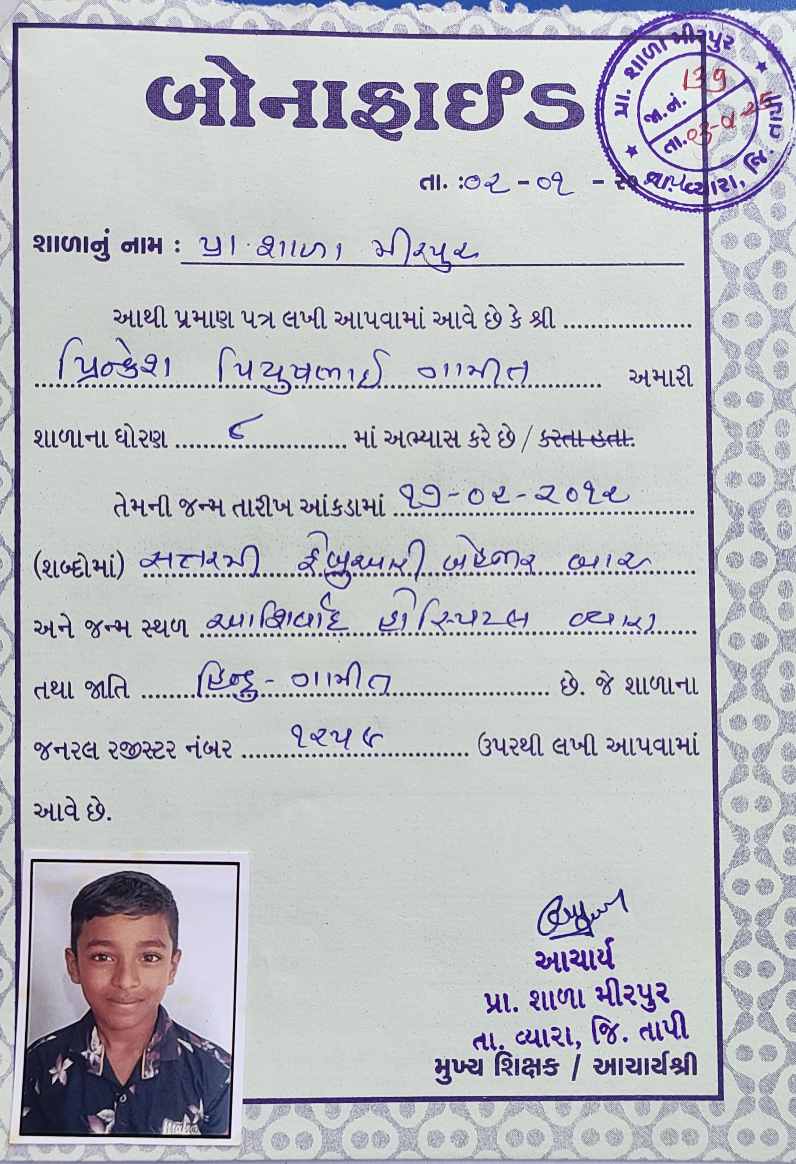 બોનાફાઈડ
પ્રા. શાળા મીરપુર
જા.નં. 139
તા.
વ્યારા, જિ. તાપી
તા. :૦૨ - ૦૧ -
શાળાનું નામ : પ્રા. શાળા મીરપુર
આથી પ્રમાણ પત્ર લખી આપવામાં આવે છે કે શ્રી ...................
પ્રિન્કેશ પિયુષભાઈ ગામીત અમારી
શાળાના ધોરણ ૮ માં અભ્યાસ કરે છે / કરતા હતા.
તેમની જન્મ તારીખ આંકડામાં ૧૭-૦૨-૨૦૧૨
(શબ્દોમાં) સત્તરમી ફેબ્રુઆરી બેહજાર બાર
અને જન્મ સ્થળ આશિર્વાદ હોસ્પિટલ વ્યારા
તથા જાતિ હિન્દુ - ગામીત છે. જે શાળાના
જનરલ રજીસ્ટર નંબર ઉપરથી લખી આપવામાં
આવે છે.
આચાર્ય
પ્રા. શાળા મીરપુર
તા. વ્યારા, જિ. તાપી
મુખ્ય શિક્ષક / આચાર્યશ્રી